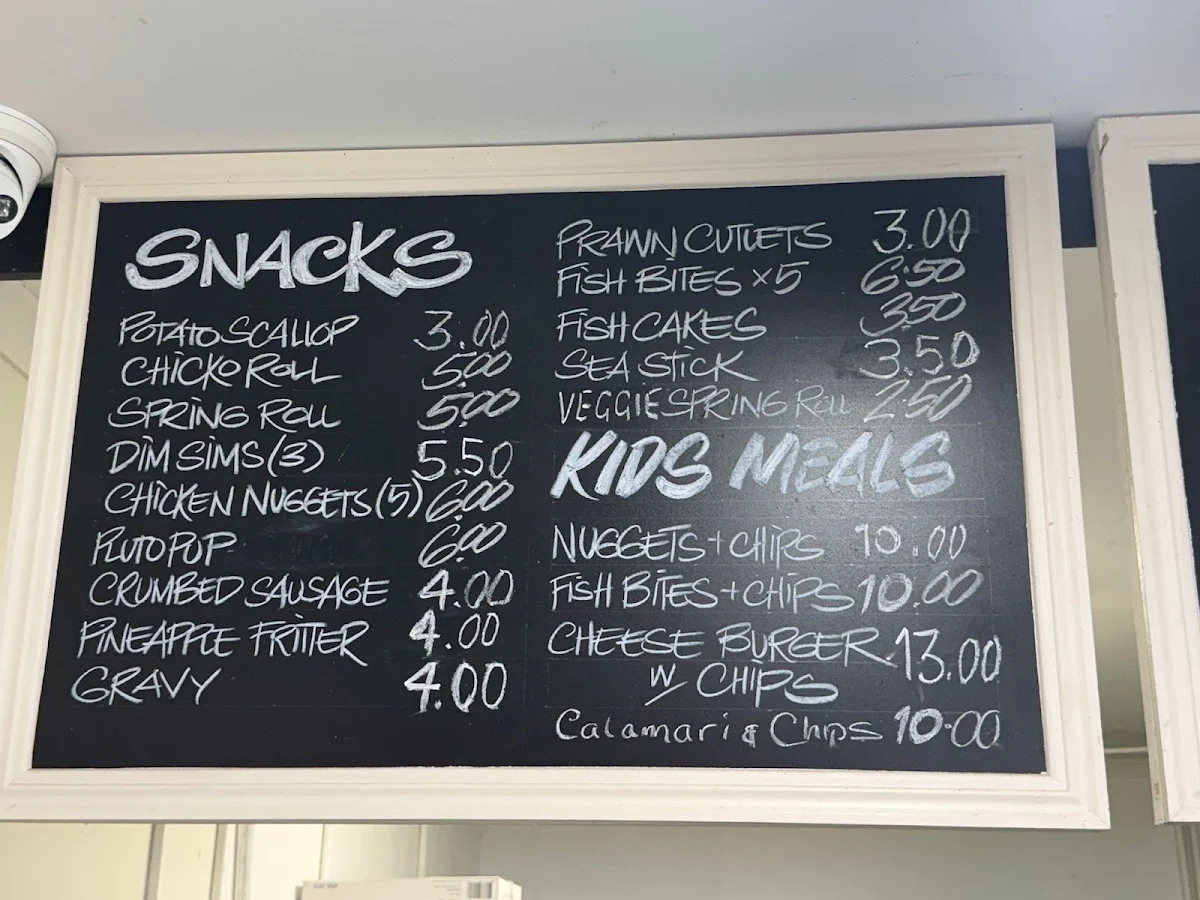 SNACKS
POTATO SCALLOP 3.00
CHICKO ROLL 5.00
SPRING ROLL 5.00
DIM SIMS (3) 5.50
CHICKEN NUGGETS (5) 6.00
PLUTO PUP 6.00
CRUMBED SAUSAGE 4.00
PINEAPPLE FRITTER 4.00
GRAVY 4.00
PRAWN CUTLETS 3.00
FISH BITES x5 6.50
FISH CAKES 3.50
SEA STICK 3.50
VEGGIE SPRING ROLL 2.50
KIDS MEALS
NUGGETS + CHIPS 10.00
FISH BITES + CHIPS 10.00
CHEESE BURGER 13.00
W/ CHIPS
Calamari & Chips 10.00